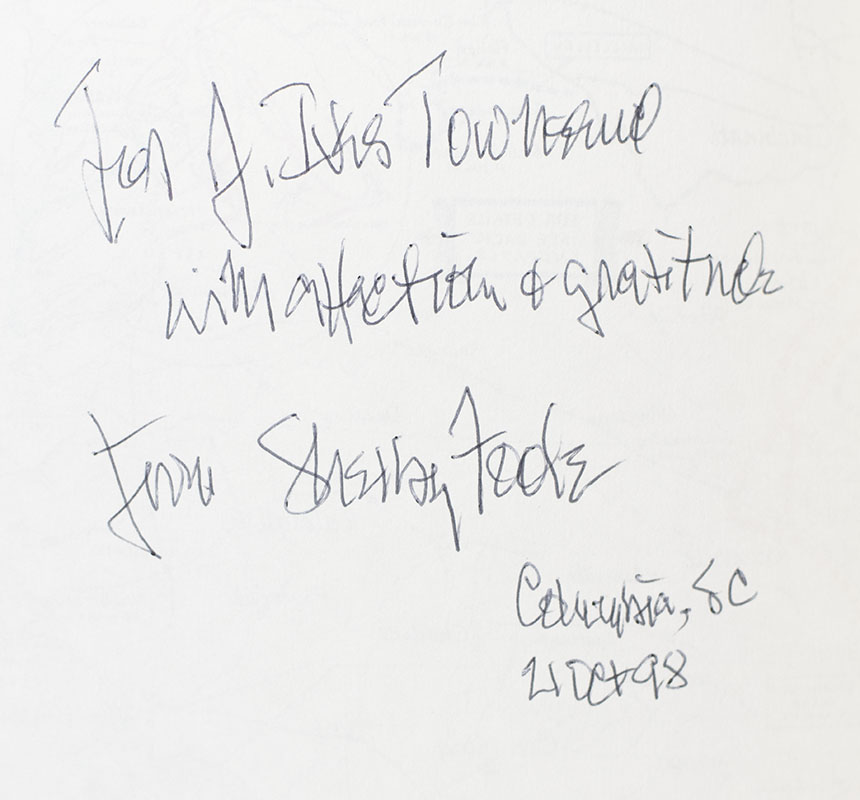 For J. Ives Townsend
with affection & gratitude
from Shelby Foote
Columbia, SC
21 Oct 98